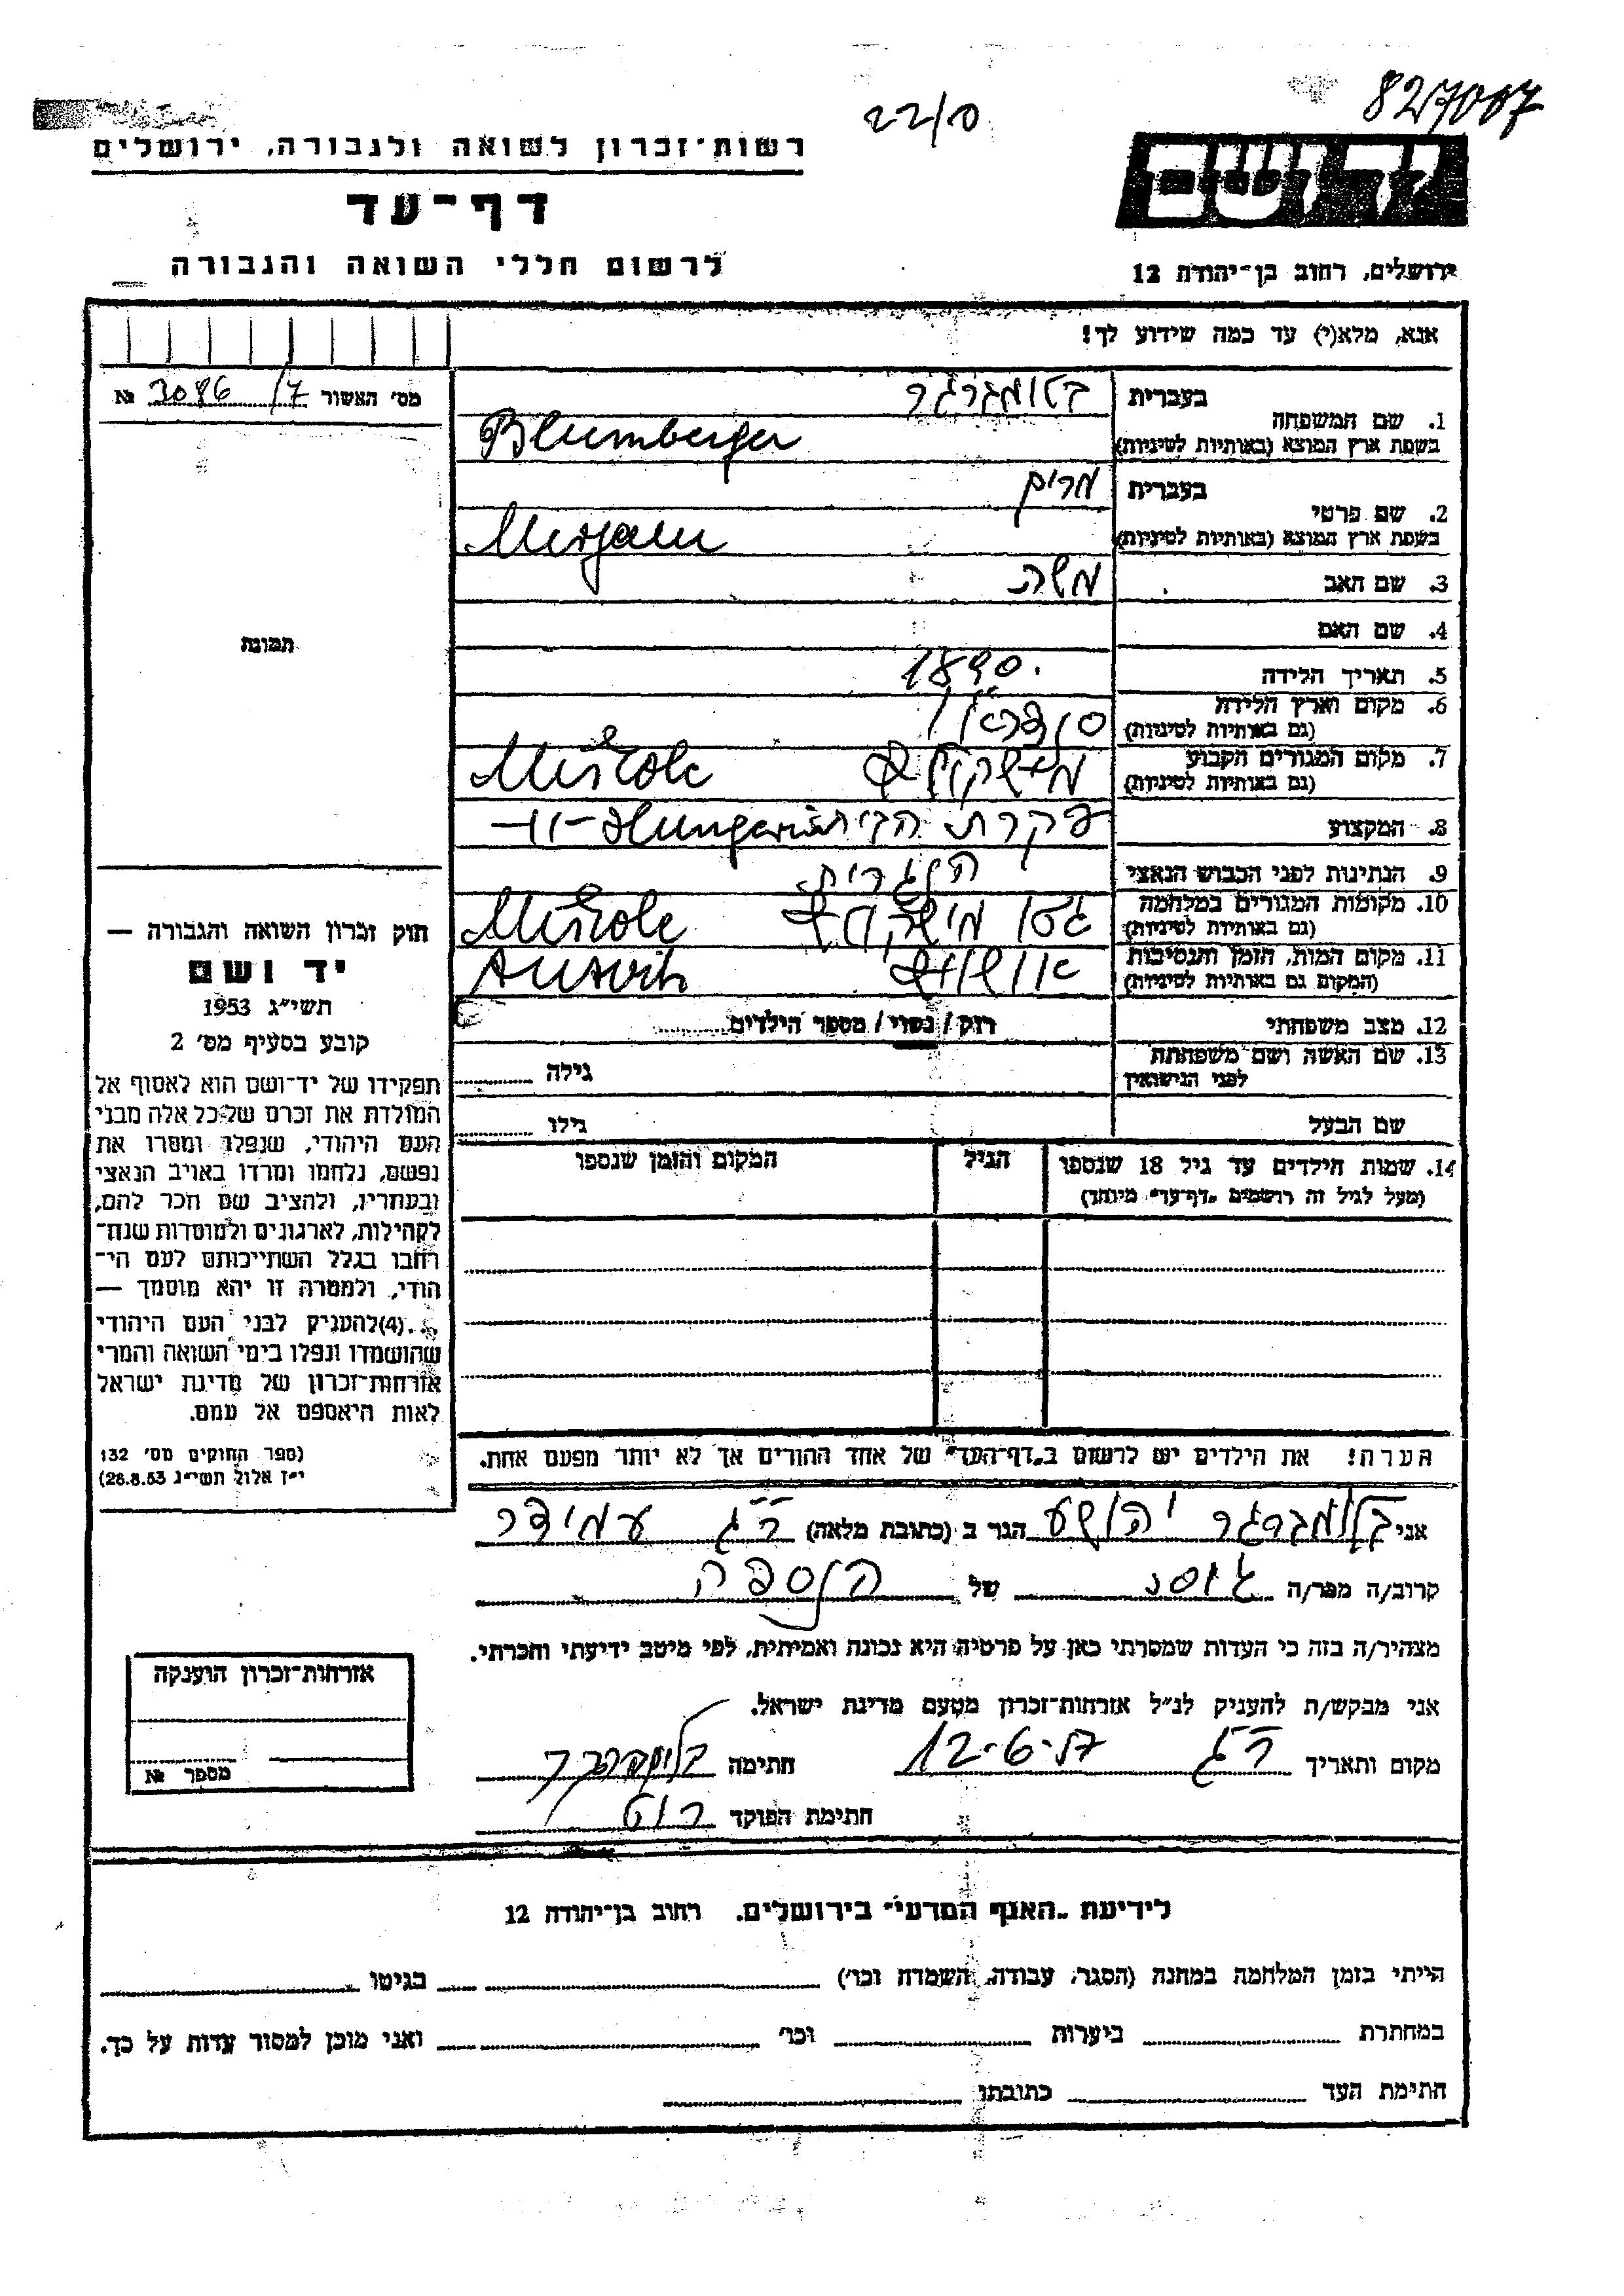 827007
22/0
רשות־זכרון לשואה ולגבורה, ירושלים
דף־עד
לרשום חללי השואה והגבורה
יד ושם
ירושלים, רחוב בן־יהודה 12
אנא, מלא(י) עד כמה שידוע לך!
מס׳ האשור 3086/7 №
1. שם המשפחה
בעברית בלומברגר
בשפת ארץ המוצא (באותיות לטיניות) Blumberger
2. שם פרטי
בעברית מרים
בשפת ארץ המוצא (באותיות לטיניות) Mirjam
3. שם האב משה
4. שם האם
5. תאריך הלידה 1890.
6. מקום וארץ הלידה
(גם באותיות לטיניות)
7. מקום המגורים הקבוע
(גם באותיות לטיניות) מישקולץ Miškolc
8. המקצוע עקרת הבית -״- Hungaria
9. הנתינות לפני הכבוש הנאצי הונגרית
10. מקומות המגורים במלחמה
(גם באותיות לטיניות) גטו מישקולץ Miškolc
11. מקום המות, הזמן והנסיבות
(המקום גם באותיות לטיניות) אושויץ Auswitz
12. מצב משפחתי רוק / נשוי / מספר הילדים
13. שם האשה ושם משפחתה
לפני הנישואין גילה
שם הבעל גילו
14. שמות הילדים עד גיל 18 שנספו הגיל המקום והזמן שנספו
(מעל לגיל זה רושמים „דף־עד״ מיוחד)
תמונה
חוק זכרון השואה והגבורה —
יד ושם
תשי״ג 1953
קובע בסעיף מס׳ 2
תפקידו של יד־ושם הוא לאסוף אל
המולדת את זכרם של כל אלה מבני
העם היהודי, שנפלו ומסרו את
נפשם, נלחמו ומרדו באויב הנאצי
ובעוזריו, ולהציב שם וזכר להם,
לקהילות, לארגונים ולמוסדות שנח־
רבו בגלל השתייכותם לעם הי־
הודי, ולמטרה זו יהא מוסמך —
...(4) להעניק לבני העם היהודי
שהושמדו ונפלו בימי השואה והמרי
אזרחות־זכרון של מדינת ישראל
לאות היאספם אל עמם.
(ספר החוקים מס׳ 132
י״ז אלול תשי״ג 28.8.53)
הערה! את הילדים יש לרשום ב„דף־העד״ של אחד ההורים אך לא יותר מפעם אחת.
אני בלומברגר יהושע הגר ב (כתובת מלאה) ר״ג עמידר
קרוב/ה מכר/ה גיסו של הנספה
מצהיר/ה בזה כי העדות שמסרתי כאן על פרטיה היא נכונה ואמיתית, לפי מיטב ידיעתי והכרתי.
אני מבקש/ת להעניק לנ״ל אזרחות־זכרון מטעם מדינת ישראל.
מקום ותאריך ר״ג 12-6-57 חתימה בלומברגר
חתימת הפוקד רוט
אזרחות־זכרון הוענקה
מספר №
לידיעת „האגף המדעי״ בירושלים, רחוב בן־יהודה 12
הייתי בזמן המלחמה במחנה (הסגר, עבודה, השמדה וכו׳) בגיטו
במחתרת ביערות וכו׳ ואני מוכן למסור עדות על כך.
חתימת העד כתובתו